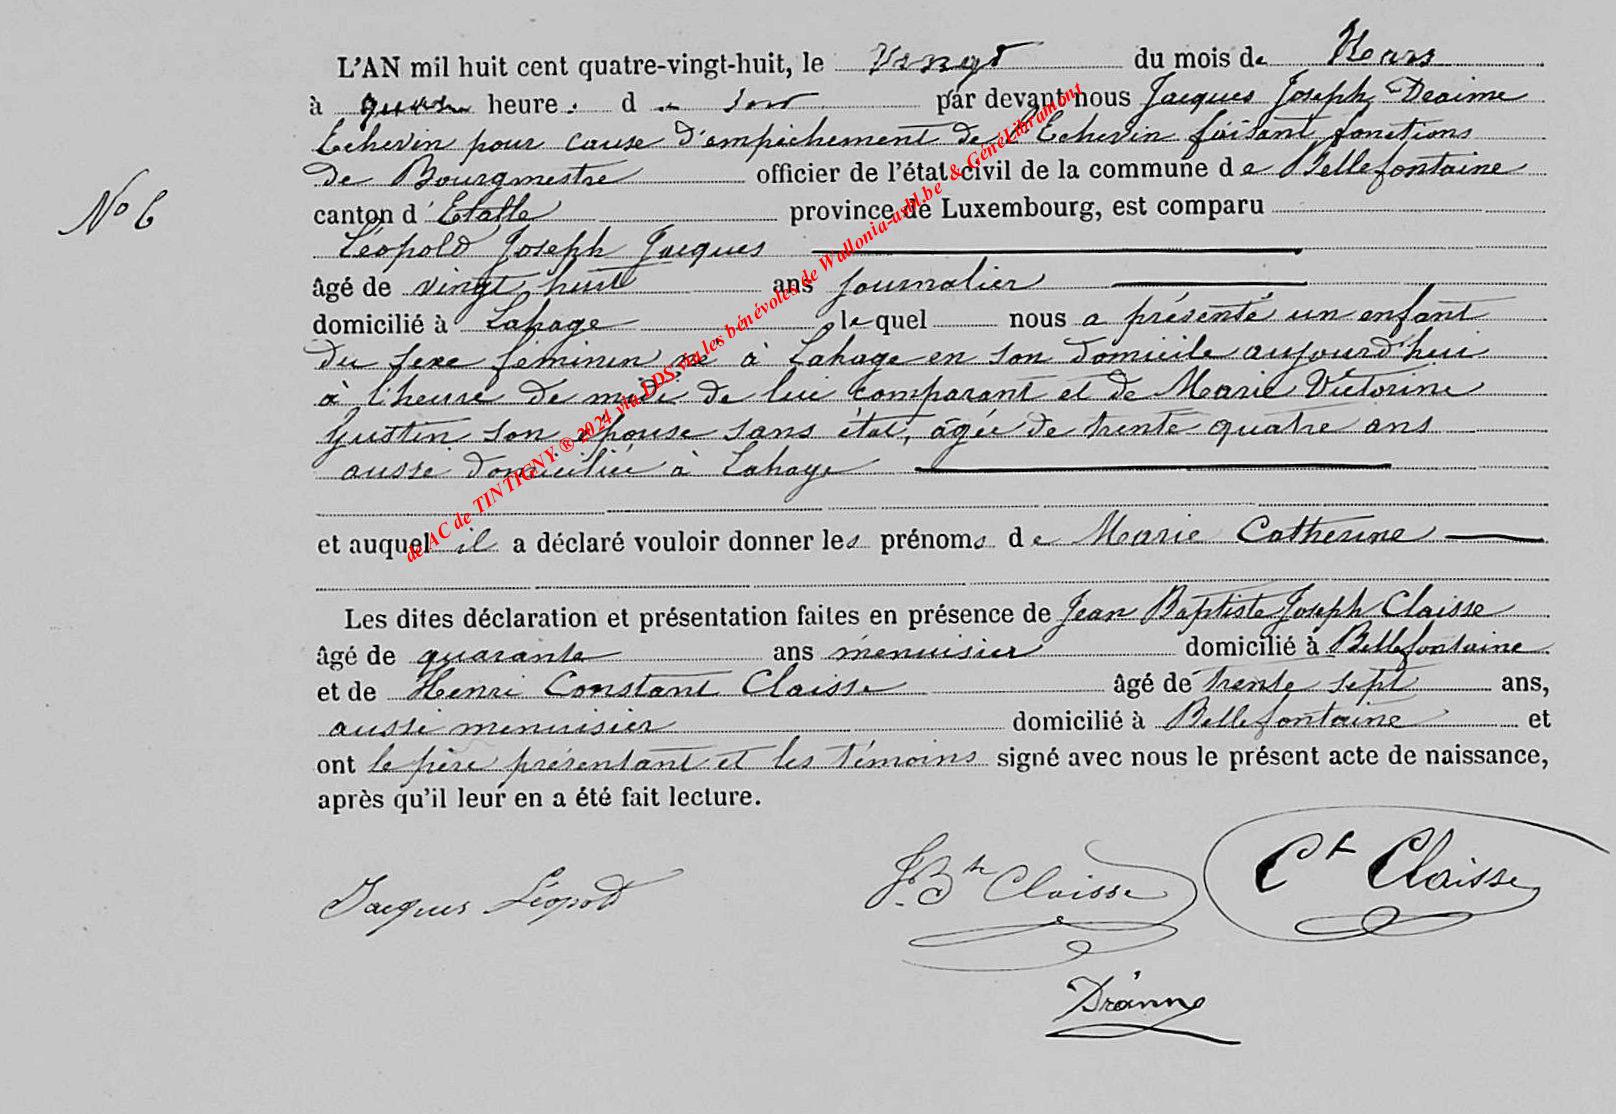 L'AN mil huit cent quatre-vingt-huit, le Vingt du mois de Mars
à quatre heures du soir par devant nous Jacques Joseph
Echevin pour cause d'empêchement de l'Echevin faisant fonctions
de Bourgmestre officier de l'état civil de la commune de Bellefontaine
No 6
canton d'Etalle province de Luxembourg, est comparu
Léopold Joseph Jacques
âgé de vingt huit ans journalier
domicilié à Lahage lequel nous a présenté un enfant
du sexe féminin né à Lahage en son domicile aujourd'hui
à l'heure de midi de lui comparant et de Marie Victorine
Gustin son épouse sans état, âgée de trente quatre ans
aussi domiciliée à Lahage
et auquel il a déclaré vouloir donner les prénoms de Marie Catherine
Les dites déclaration et présentation faites en présence de Jean Baptiste Joseph Claisse
âgé de quarante ans menuisier domicilié à Bellefontaine
et de Henri Constant Claisse âgé de trente sept ans,
aussi menuisier domicilié à Bellefontaine et
ont le père présentant et les témoins signé avec nous le présent acte de naissance,
après qu'il leur en a été fait lecture.
Jacques Léopold
J. Bte Claisse
Ct Claisse
de AC de TINTIGNY ® 2024 via LDS via les bénévoles de Wallonia-asbl.be & GénéLibramont